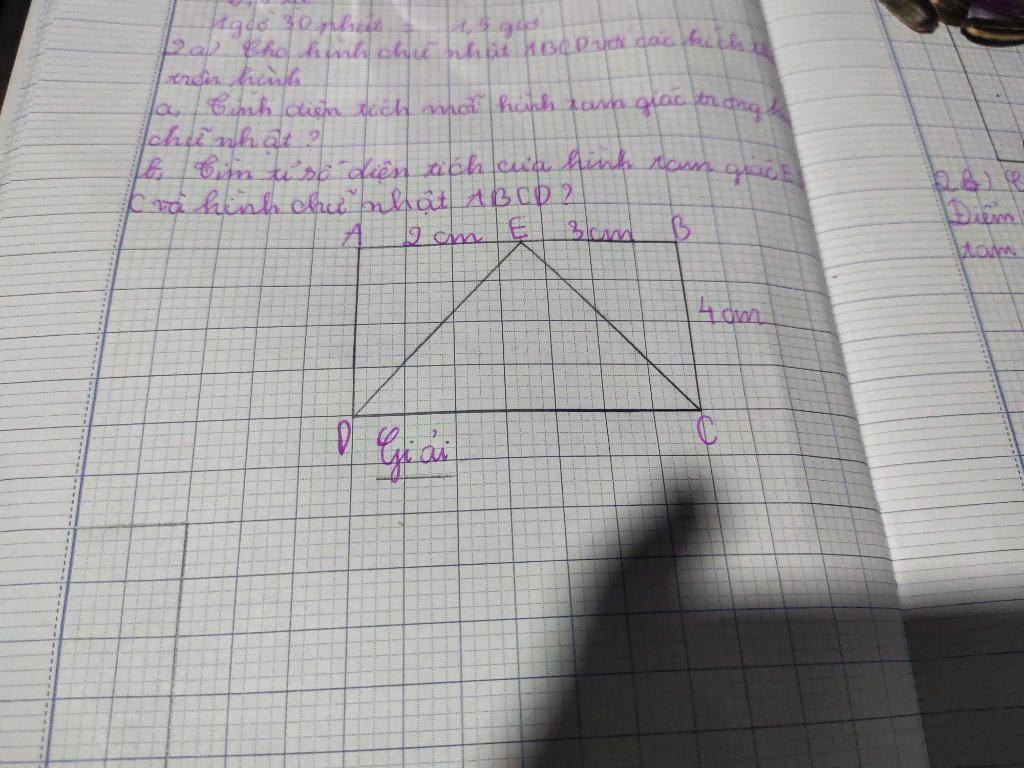 1 giờ 30 phút = 1,5 giờ
2a) Cho hình chữ nhật ABCD với các kích
trên hình
a, Tính diện tích mỗi hình tam giác trong
chữ nhật?
b, Tìm tỉ số diện tích của hình tam giác E
C và hình chữ nhật ABCD?
A 2 cm E 3 cm B
4 cm
D C
Giải
2b)
Điểm
tam